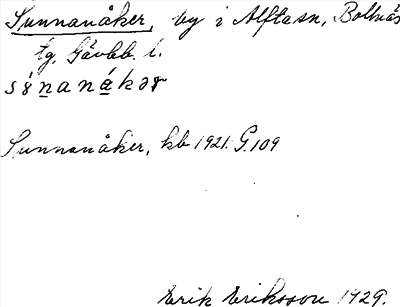 Sunnanåker, by i Alftasn, Bollnäs
tg. Gävlb. l.
Sunnanåker, kb 1921. G.109
Erik Eriksson 1929.